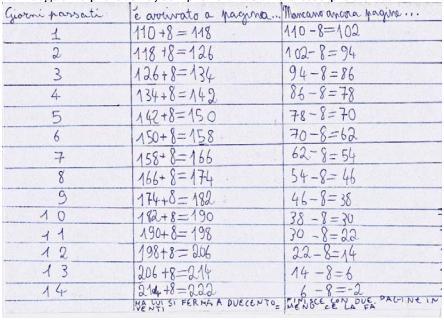 Giorni passati è arrivato a pagina... Mancano ancora pagine...
1 110+8=118 110-8=102
2 118+8=126 102-8=94
3 126+8=134 94-8=86
4 134+8=142 86-8=78
5 142+8=150 78-8=70
6 150+8=158 70-8=62
7 158+8=166 62-8=54
8 166+8=174 54-8=46
9 174+8=182 46-8=38
10 182+8=190 38-8=30
11 190+8=198 30-8=22
12 198+8=206 22-8=14
13 206+8=214 14-8=6
14 214+8=222 6-8=-2
MA LUI SI FERMA A DUECENTO= FINISCE CON DUE PAGINE IN
VENTI MENO CE LA FA